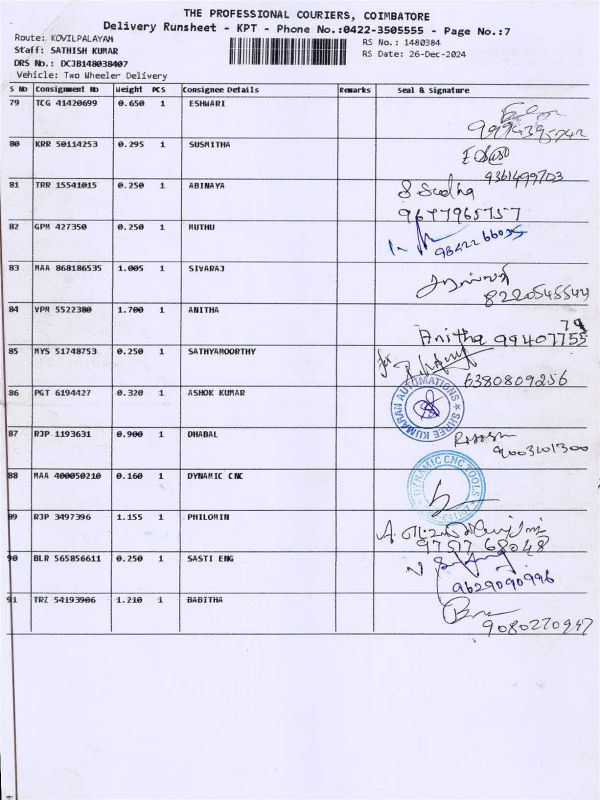 THE PROFESSIONAL COURIERS, COIMBATORE
Delivery Runsheet - KPT - Phone No.:0422-3505555 - Page No.:7
Route: KOVILPALAYAM
RS No.: 1480384
Staff: SATHISH KUMAR
RS Date: 26-Dec-2024
DRS No.: DCJB148038407
Vehicle: Two Wheeler Delivery
S No Consignment No Weight PCS Consignee Details Remarks Seal & Signature
79 TCG 41420699 0.650 1 ESHWARI
80 KRR 50114253 0.295 1 SUSMITHA
9361499703
81 TRR 15541015 0.250 1 ABINAYA
S Sudha
9677965757
82 GPM 427350 0.250 1 MUTHU
83 MAA 868186535 1.005 1 SIVARAJ
84 VPM 5522380 1.700 1 ANITHA
Anitha 99407755
79
85 MYS 51748753 0.250 1 SATHYAMOORTHY
6380809256
86 PGT 6194427 0.320 1 ASHOK KUMAR
SHREE KUMARAN AUTOMATIONS
87 RJP 1193631 0.900 1 DHABAL
9003101300
88 MAA 400050210 0.160 1 DYNAMIC CNC
DYNAMIC CNC TOOLS
89 RJP 3497396 1.155 1 PHILOMIN
9757 68048
90 BLR 565856611 0.250 1 SASTI ENG
9629090996
91 TRZ 54193906 1.210 1 BABITHA
9080270947